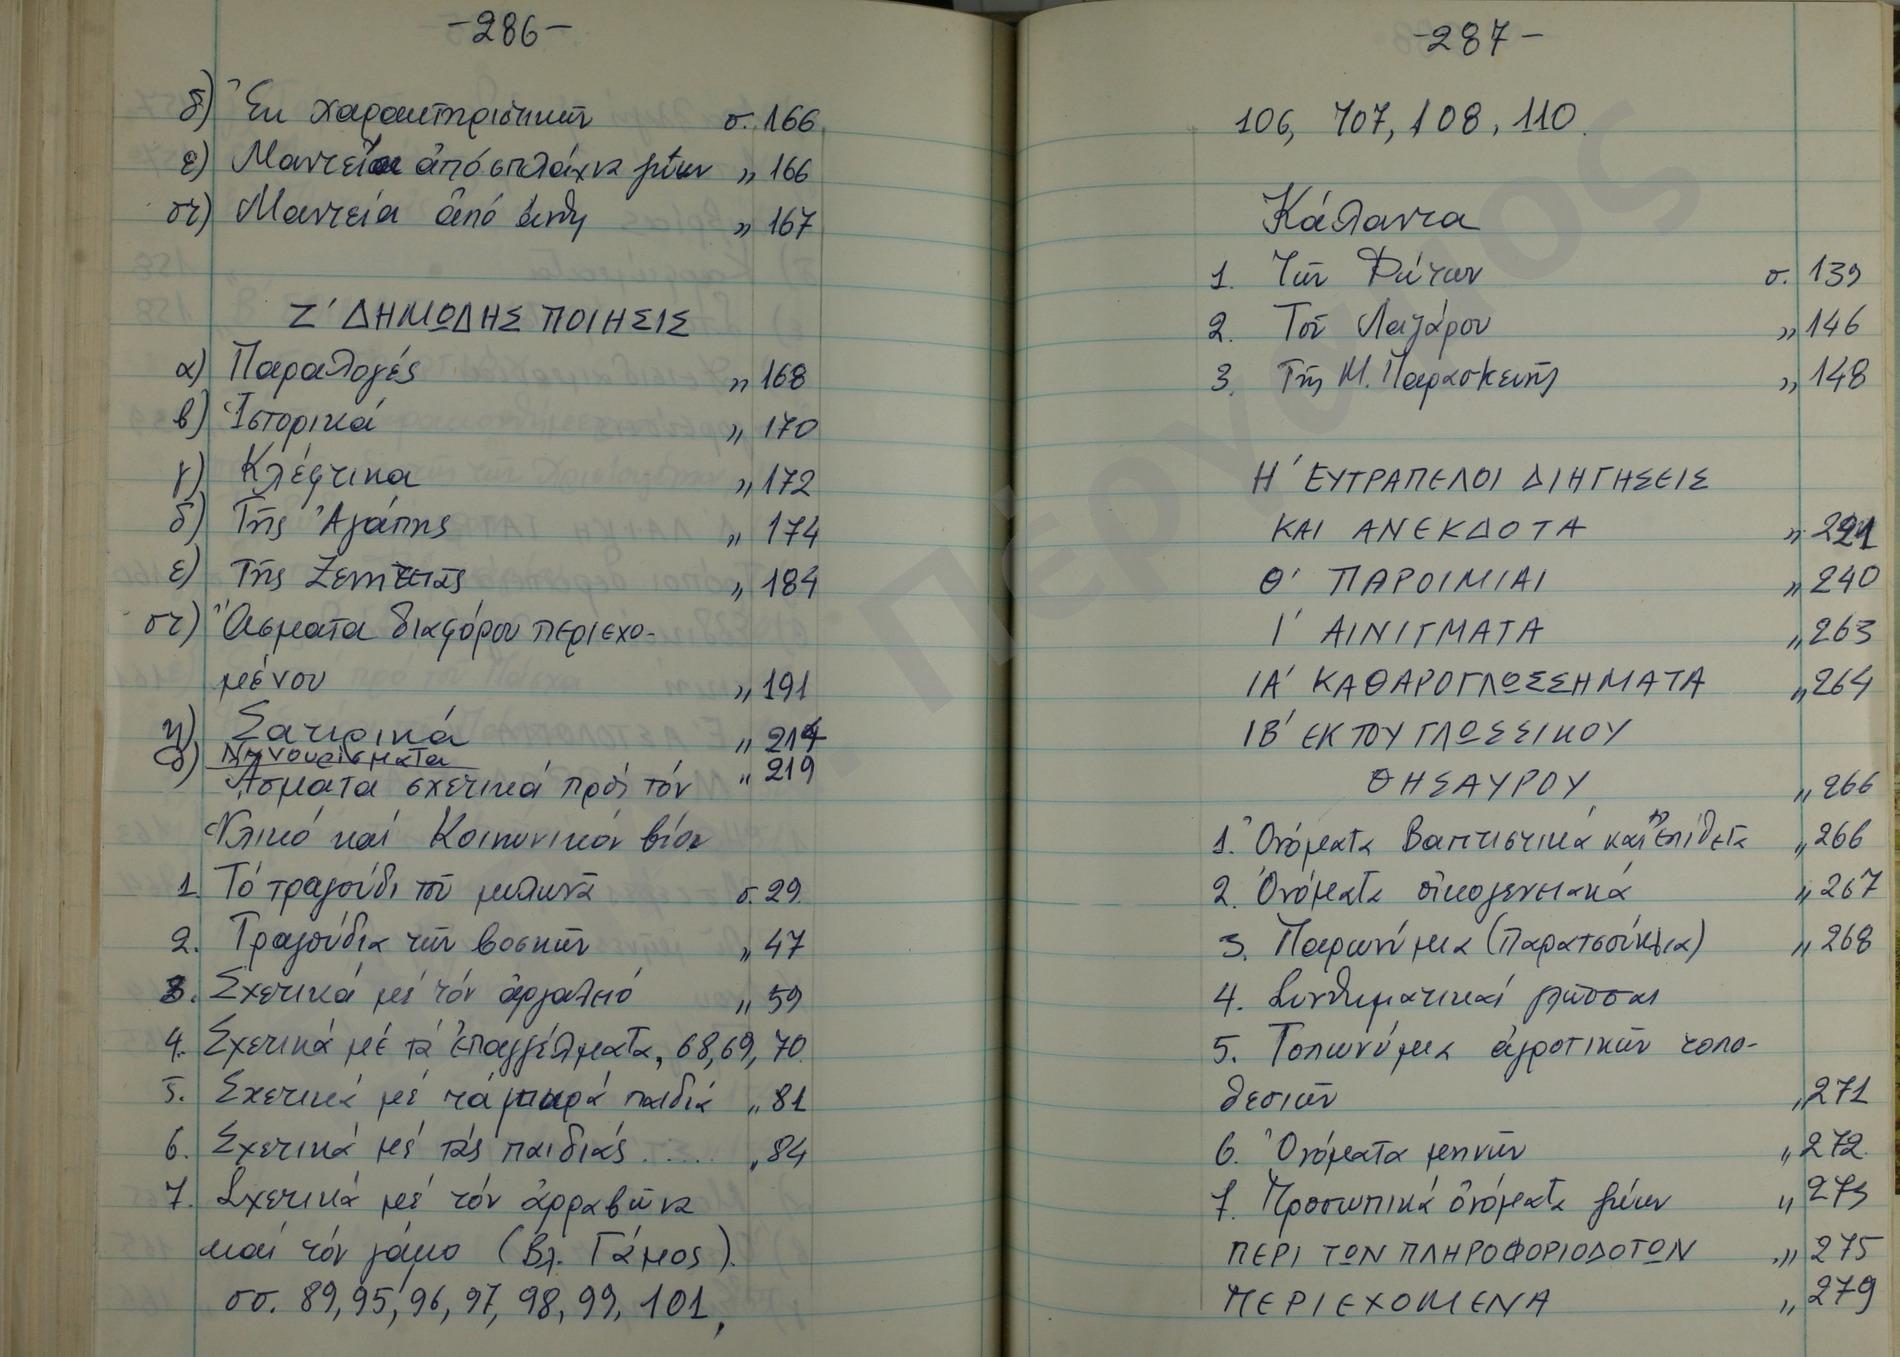 -286-
δ) Ἐκ χαρακτηριστικῶν σ. 166
ε) Μαντεία ἀπό σπλάχνα ζώων " 166
στ) Μαντεία ἀπό " 167
Ζ' ΔΗΜΩΔΗΣ ΠΟΙΗΣΙΣ
α) Παραλογές " 168
β) Ἱστορικά " 170
γ) Κλέφτικα " 172
δ) Τῆς Ἀγάπης " 174
ε) Τῆς Ξενητειᾶς " 184
στ) Ἄσματα διαφόρου περιεχο-
μένου " 191
η) Σατιρικά " 214
Νανουρίσματα " 219
Ἄσματα σχετικά πρός τόν
Ὑλικό καί Κοινωνικόν βίον
1. Τό τραγούδι τοῦ μυλωνᾶ σ. 29.
2. Τραγούδια τῶν βοσκῶν " 47
3. Σχετικά μέ τόν ἀργαλειό " 59
4. Σχετικά μέ τά ἐπαγγέλματα, 68, 69, 70.
5. Σχετικά μέ τά μικρά παιδιά " 81
6. Σχετικά μέ τάς παιδιάς ..... " 84
7. Σχετικά μέ τόν ἀρραβῶνα
καί τόν γάμο (Βλ. Γάμος).
σσ. 89, 95, 96, 97, 98, 99, 101,
-287-
106, 107, 108, 110.
Κάλαντα
1. Τῶν Φώτων σ. 139
2. Τοῦ Λαζάρου " 146
3. Τῆς Μ. Παρασκευῆς " 148
Η' ΕΥΤΡΑΠΕΛΟΙ ΔΙΗΓΗΣΕΙΣ
ΚΑΙ ΑΝΕΚΔΟΤΑ " 221
Θ' ΠΑΡΟΙΜΙΑΙ " 240
Ι' ΑΙΝΙΓΜΑΤΑ " 263
ΙΑ' ΚΑΘΑΡΟΓΛΩΣΣΗΜΑΤΑ " 264
ΙΒ' ΕΚ ΤΟΥ ΓΛΩΣΣΙΚΟΥ
ΘΗΣΑΥΡΟΥ " 266
1. Ὀνόματα Βαπτιστικά καί Ἐπίθετα " 266
2. Ὀνόματα οἰκογενειακά " 267
3. Παρωνύμια (Παρατσούκλια) " 268
4. Συνθηματικαί γλῶσσαι
5. Τοπωνύμια ἀγροτικῶν τοπο-
θεσιῶν " 271
6. Ὀνόματα μηνῶν " 272.
7. Προσωπικά ὀνόματα ζώων " 273
ΠΕΡΙ ΤΩΝ ΠΛΗΡΟΦΟΡΙΟΔΟΤΩΝ " 275
ΠΕΡΙΕΧΟΜΕΝΑ " 279